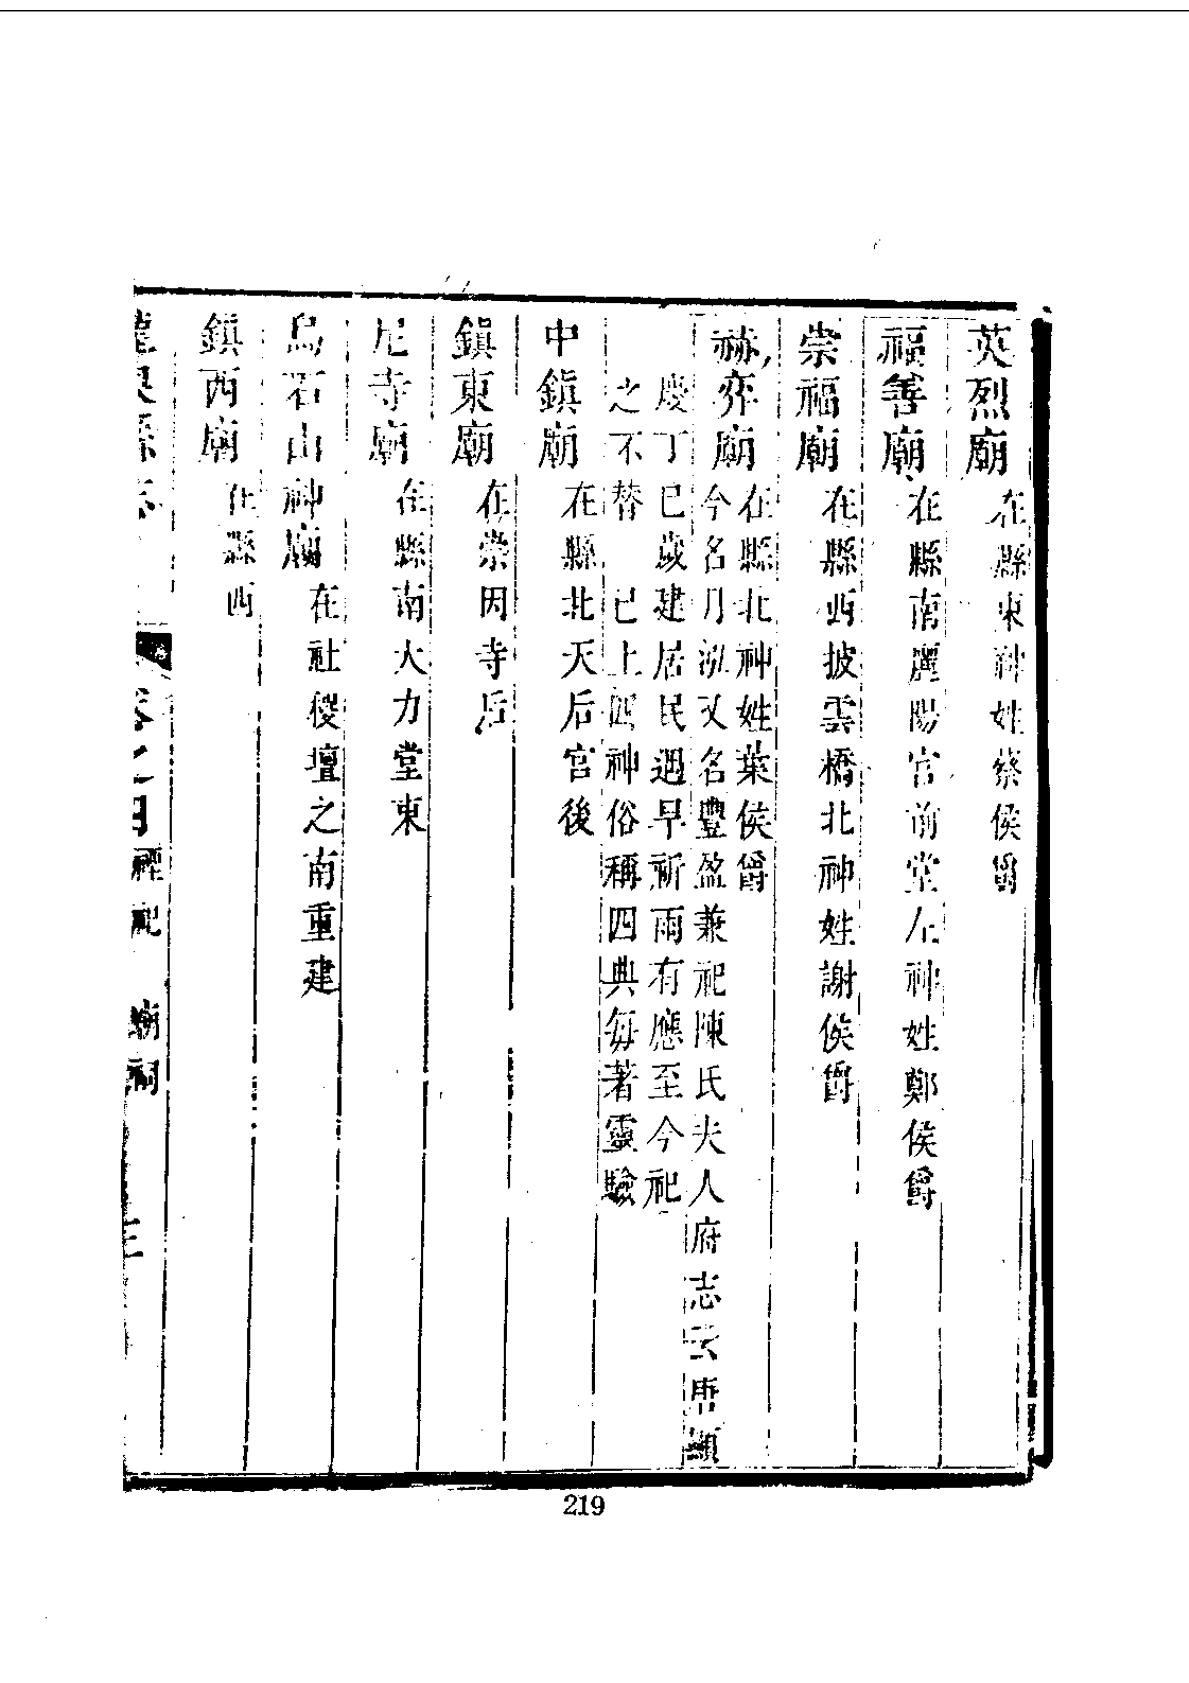 英烈廟 在縣東神姓蔡侯爵
福善廟 在縣南麗陽宮前堂左神姓鄭侯爵
崇福廟 在縣西披雲橋北神姓謝侯爵
赫弈廟 在縣北神姓葉侯爵
今名月泓又名豐盈兼祀陳氏夫人府志云唐顯
慶丁巳歲建居民遇旱祈雨有應至今祀
之不替 已上四神俗稱四典每著靈驗
中鎮廟 在縣北天后宮後
鎮東廟 在崇因寺后
尼寺廟 在縣南大力堂東
烏石山神廟 在社稷壇之南重建
鎮西廟 在縣西
龍泉縣志 卷之四 禋祀 廟祠 三
219